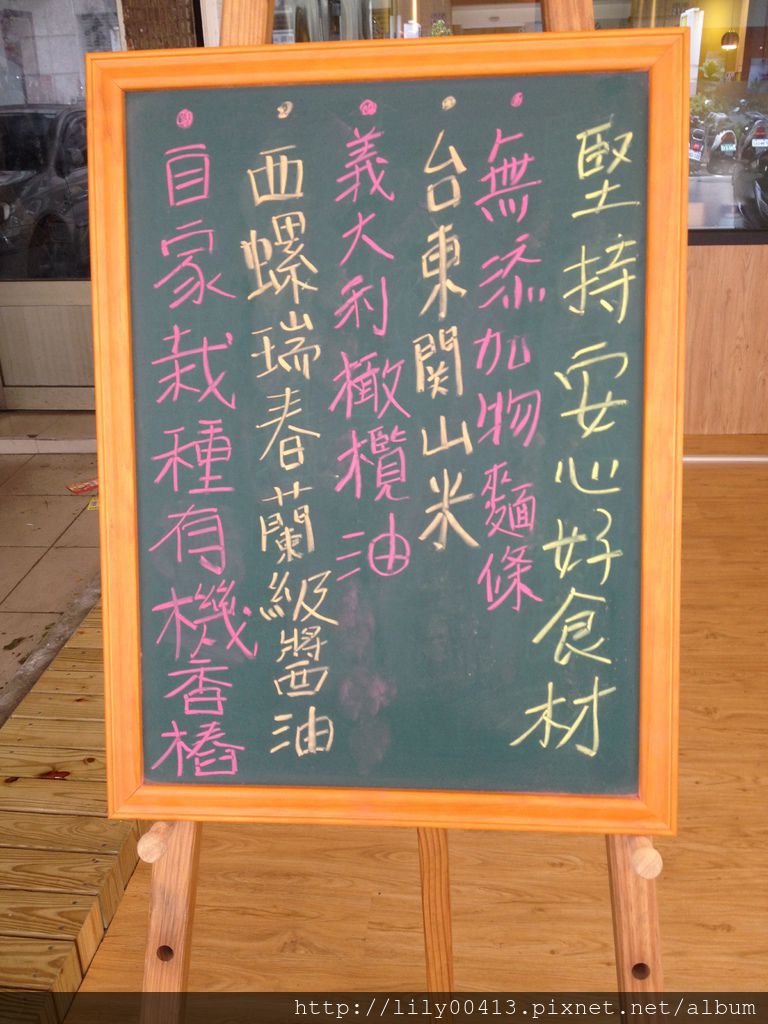 堅持安心好食材
無添加物麵條
台東関山米
義大利橄欖油
西螺瑞春蘭級醬油
自家栽種有機香椿
http://lily00413.pixnet.net/album